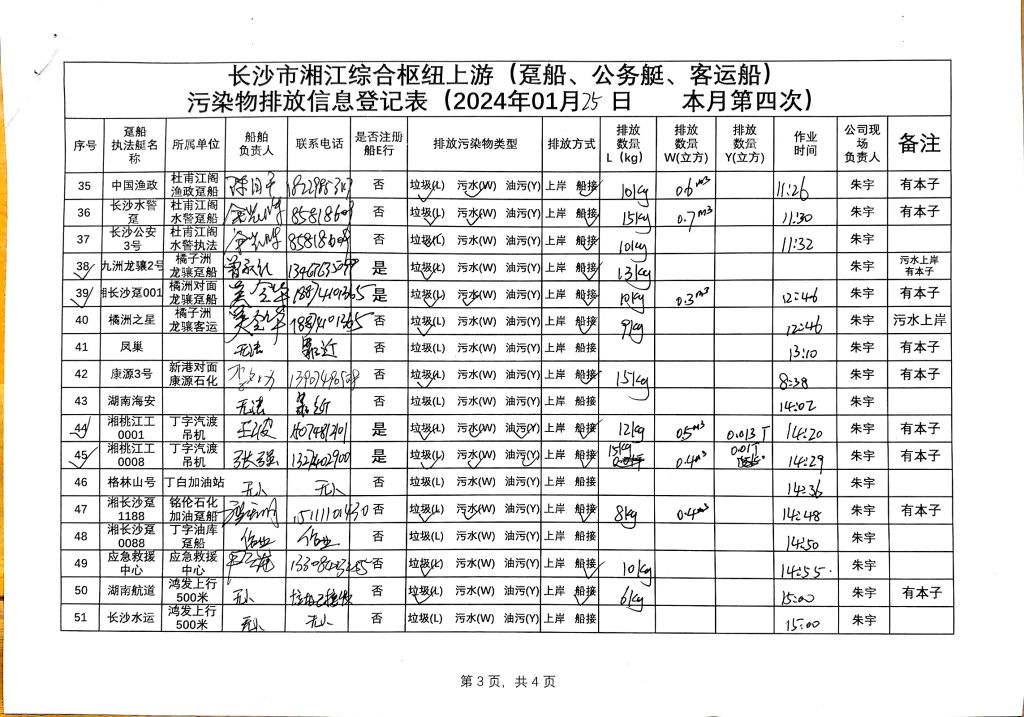 长沙市湘江综合枢纽上游（趸船、公务艇、客运船）
污染物排放信息登记表（2024年01月25日 本月第四次）
序号 趸船执法艇名称 所属单位 船舶负责人 联系电话 是否注册船E行 排放污染物类型 排放方式 排放数量L（kg） 排放数量W(立方) 排放数量Y(立方) 作业时间 公司现场负责人 备注
35 中国渔政 杜甫江阁渔政趸船 否 垃圾(L) 污水(W) 油污(Y) 上岸 船接 10kg 0.6m3 11:26 朱宇 有本子
36 长沙水警趸 杜甫江阁水警趸船 85818609 否 垃圾(L) 污水(W) 油污(Y) 上岸 船接 15kg 0.7m3 11:30 朱宇 有本子
37 长沙公安3号 杜甫江阁水警执法 85818609 否 垃圾(L) 污水(W) 油污(Y) 上岸 船接 10kg 11:32 朱宇
38 九洲龙骧2号 橘子洲龙骧趸船 是 垃圾(L) 污水(W) 油污(Y) 上岸 船接 13kg 朱宇 污水上岸有本子
39 湘长沙趸001 橘洲对面龙骧趸船 18874101365 是 垃圾(L) 污水(W) 油污(Y) 上岸 船接 10kg 0.3m3 12:46 朱宇 有本子
40 橘洲之星 橘子洲龙骧客运 18874101365 否 垃圾(L) 污水(W) 油污(Y) 上岸 船接 9kg 12:46 朱宇 污水上岸
41 凤巢 无法 靠近 否 垃圾(L) 污水(W) 油污(Y) 上岸 船接 13:10 朱宇 有本子
42 康源3号 新港对面康源石化 否 垃圾(L) 污水(W) 油污(Y) 上岸 船接 15kg 8:38 朱宇 有本子
43 湖南海安 无法 靠近 否 垃圾(L) 污水(W) 油污(Y) 上岸 船接 14:02 朱宇
44 湘桃江工0001 丁字汽渡吊机 是 垃圾(L) 污水(W) 油污(Y) 上岸 船接 12kg 0.5m3 0.013T 14:20 朱宇 有本子
45 湘桃江工0008 丁字汽渡吊机 张强 是 垃圾(L) 污水(W) 油污(Y) 上岸 船接 15kg 0.4m3 0.01T 14:29 朱宇 有本子
46 格林山号 丁白加油站 无人 无人 否 垃圾(L) 污水(W) 油污(Y) 上岸 船接 14:36 朱宇
47 湘长沙趸1188 铭伦石化加油趸船 15111101430 否 垃圾(L) 污水(W) 油污(Y) 上岸 船接 8kg 0.4m3 14:48 朱宇 有本子
48 湘长沙趸0088 丁字油库趸船 作业 作业 否 垃圾(L) 污水(W) 油污(Y) 上岸 船接 14:50 朱宇
49 应急救援中心 应急救援中心 否 垃圾(L) 污水(W) 油污(Y) 上岸 船接 10kg 14:55 朱宇
50 湖南航道 鸿发上行500米 无人 否 垃圾(L) 污水(W) 油污(Y) 上岸 船接 6kg 15:00 朱宇 有本子
51 长沙水运 鸿发上行500米 无人 无人 否 垃圾(L) 污水(W) 油污(Y) 上岸 船接 15:00 朱宇
第 3 页，共 4 页